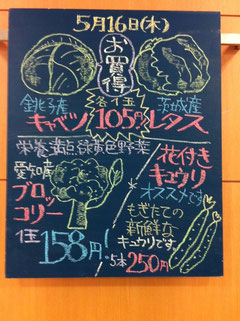 5月16日(木)
お買得
銚子産
キャベツ
各1玉
105円
茨城産
レタス
栄養満点緑黄色野菜
愛知産
ブロッ
コリー
1玉
158円!
花付き
キュウリ
オススメです
もぎたての
新鮮な
キュウリです。
5本250円